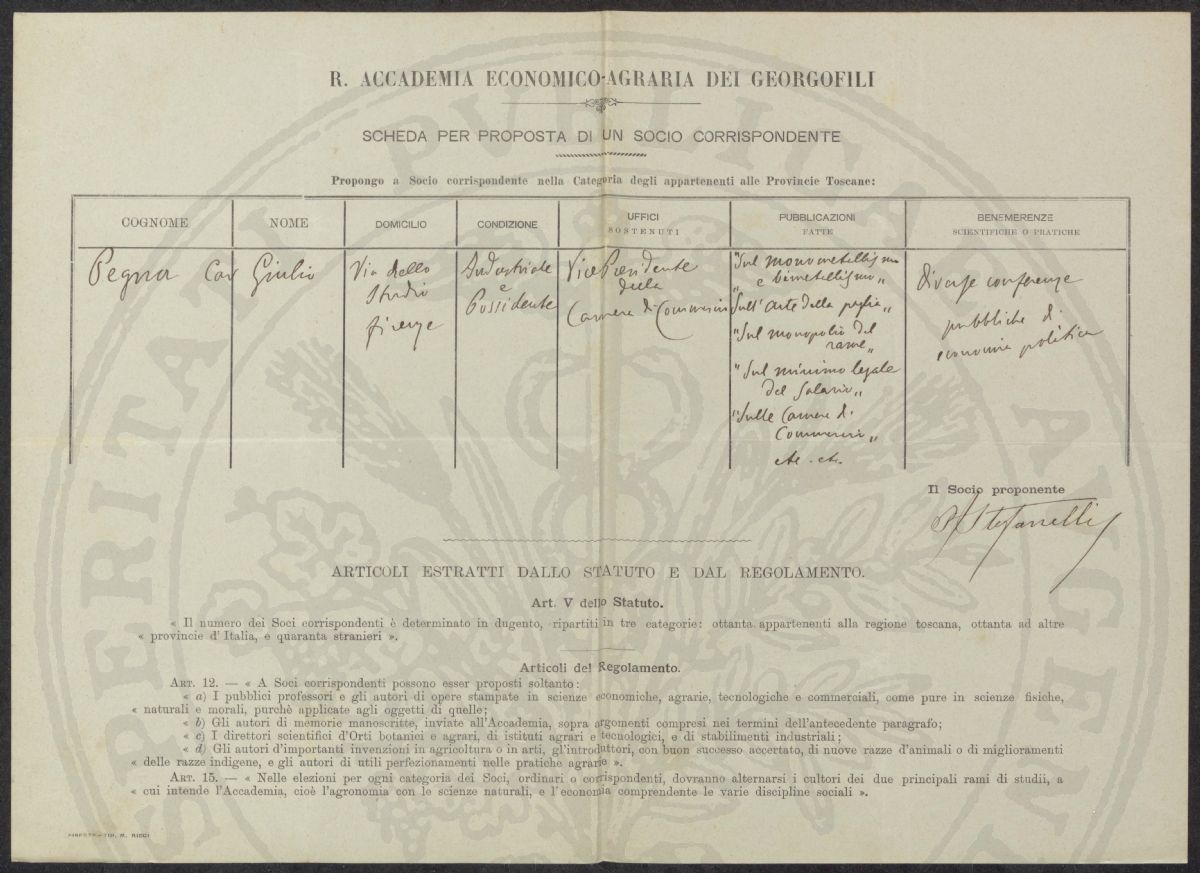 R. ACCADEMIA ECONOMICO-AGRARIA DEI GEORGOFILI
SCHEDA PER PROPOSTA DI UN SOCIO CORRISPONDENTE
Propongo a Socio corrispondente nella Categoria degli appartenenti alle Provincie Toscane:
COGNOME
Pegna Cav
NOME
Giulio
DOMICILIO
Via dello
Studio
Firenze
CONDIZIONE
Industriale
e
Possidente
UFFICI
SOSTENUTI
Vice Presidente
della
Camera di Commercio
PUBBLICAZIONI
FATTE
"Sul monometellismo
e bimetellismo"
"Sull'Arte della paglia"
"Sul monopolio del
rame"
"Sul minimo legale
del Salario"
"Sulle Camere di
Commercio"
etc. etc.
BENEMERENZE
SCIENTIFICHE O PRATICHE
diverse conferenze
pubbliche di
economia politica
Il Socio proponente
Stefanelli
ARTICOLI ESTRATTI DALLO STATUTO E DAL REGOLAMENTO.
Art. V dello Statuto.
« Il numero dei Soci corrispondenti è determinato in dugento, ripartiti in tre categorie: ottanta appartenenti alla regione toscana, ottanta ad altre
« provincie d'Italia, e quaranta stranieri ».
Articoli del Regolamento.
ART. 12. — « A Soci corrispondenti possono esser proposti soltanto:
« a) I pubblici professori e gli autori di opere stampate in scienze economiche, agrarie, tecnologiche e commerciali, come pure in scienze fisiche,
« naturali e morali, purchè applicate agli oggetti di quelle;
« b) Gli autori di memorie manoscritte, inviate all'Accademia, sopra argomenti compresi nei termini dell'antecedente paragrafo;
« c) I direttori scientifici d'Orti botanici e agrari, di istituti agrari e tecnologici, e di stabilimenti industriali;
« d) Gli autori d'importanti invenzioni in agricoltura o in arti, gl'introduttori, con buon successo accertato, di nuove razze d'animali o di miglioramenti
« delle razze indigene, e gli autori di utili perfezionamenti nelle pratiche agrarie ».
ART. 15. — « Nelle elezioni per ogni categoria dei Soci, ordinari o corrispondenti, dovranno alternarsi i cultori dei due principali rami di studii, a
« cui intende l'Accademia, cioè l'agronomia con le scienze naturali, e l'economia comprendente le varie discipline sociali ».
FIRENZE—TIP. M. RICCI
PROSPERITATI PVBLICAE AVGENDAE